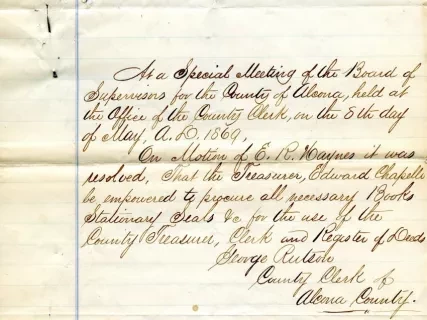 At a Special Meeting of the Board of
Supervisors for the County of Alcona, held at
the Office of the County Clerk, on the 8th day
of May, A. D. 1869,
On Motion of E. R. Haynes it was
resolved, That the Treasurer, Edward Chapelle
be empowered to procure all necessary Books
Stationary Seals &c for the use of the
County Treasurer, Clerk and Register of Deeds
George Rutson
County Clerk of
Alcona County.